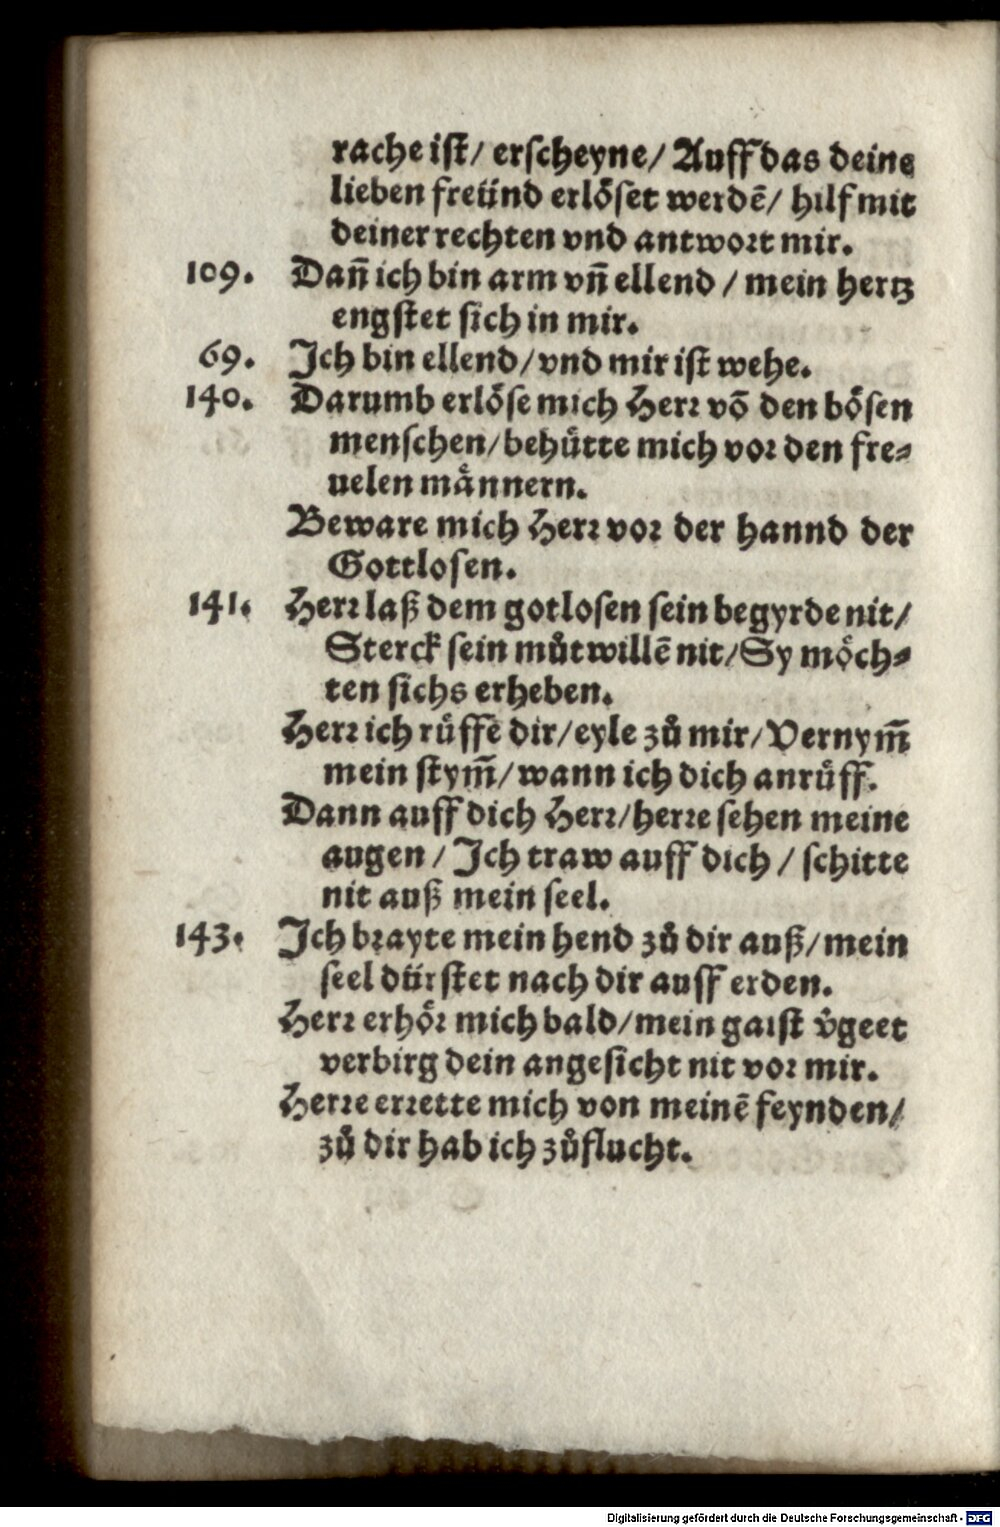 rache ist/ erscheyne/ Auff das deine
lieben freünd erlöset werdē/ hilf mit
deiner rechten vnd antwort mir.
109. Dañ ich bin arm vñ ellend / mein hertz
engstet sich in mir.
69. Ich bin ellend/vnd mir ist wehe.
140. Darumb erlöse mich Herr vō den bösen
menschen/behütte mich vor den fre⸗
uelen männern.
Beware mich Herr vor der hannd der
Gottlosen.
141. Herr laß dem gotlosen sein begyrde nit/
Sterck sein můtwillē nit/Sy möch⸗
ten sichs erheben.
Herr ich rüffe dir/eyle zů mir/Vernym̃
mein stym̃/wann ich dich anrüff.
Dann auff dich Herr/herre sehen meine
augen / Ich traw auff dich / schitte
nit auß mein seel.
143. Ich brayte mein hend zů dir auß/mein
seel dürstet nach dir auff erden.
Herr erhör mich bald/mein gaist v̉geet
verbirg dein angesicht nit vor mir.
Herre errette mich von meinē feynden/
zů dir hab ich zůflucht.
Digitalisierung gefördert durch die Deutsche Forschungsgemeinschaft - DFG